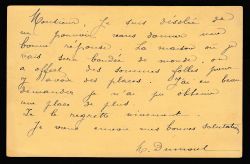 Monsieur, je suis désolée de
ne pouvoir vous donner une
bonne réponse. La maison où je
vais sera bondée de monde, on
a offert des sommes folles pour
y avoir des places. J'ai eu beau
demander je n'ai pu obtenir
une place de plus.
Je le regrette vivement.
Je vous envoie mes bonnes salutations